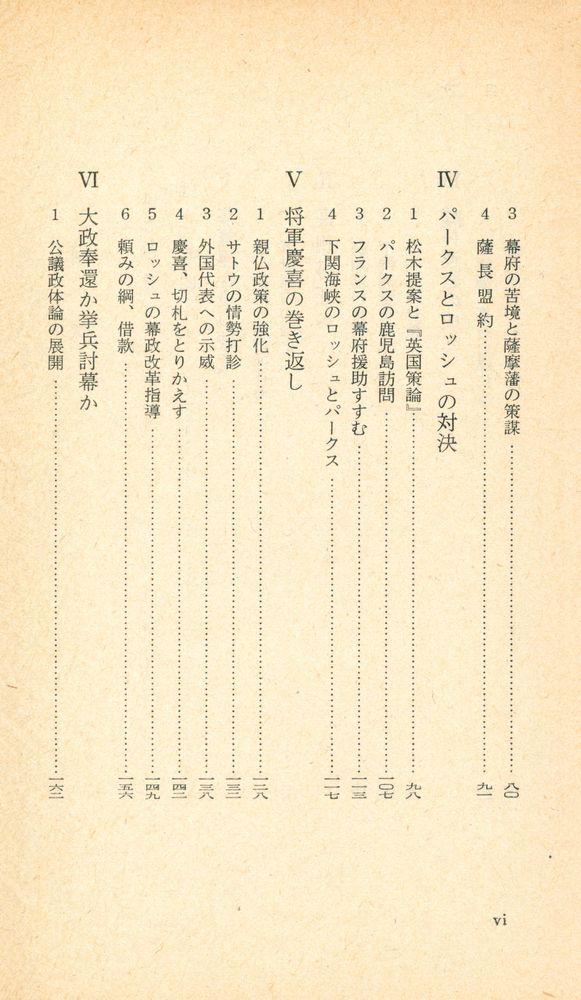 3 幕府の苦境と薩摩藩の策謀……八〇
4 薩長盟約……九一
Ⅳ パークスとロッシュの対決
1 松木提案と『英国策論』……九八
2 パークスの鹿児島訪問……一〇七
3 フランスの幕府援助すすむ……一一三
4 下関海峡のロッシュとパークス……一一七
Ⅴ 将軍慶喜の巻き返し
1 親仏政策の強化……一二八
2 サトウの情勢打診……一三二
3 外国代表への示威……一三八
4 慶喜、切札をとりかえす……一四二
5 ロッシュの幕政改革指導……一四九
6 頼みの綱、借款……一五六
Ⅵ 大政奉還か挙兵討幕か
1 公議政体論の展開……一六二
vi